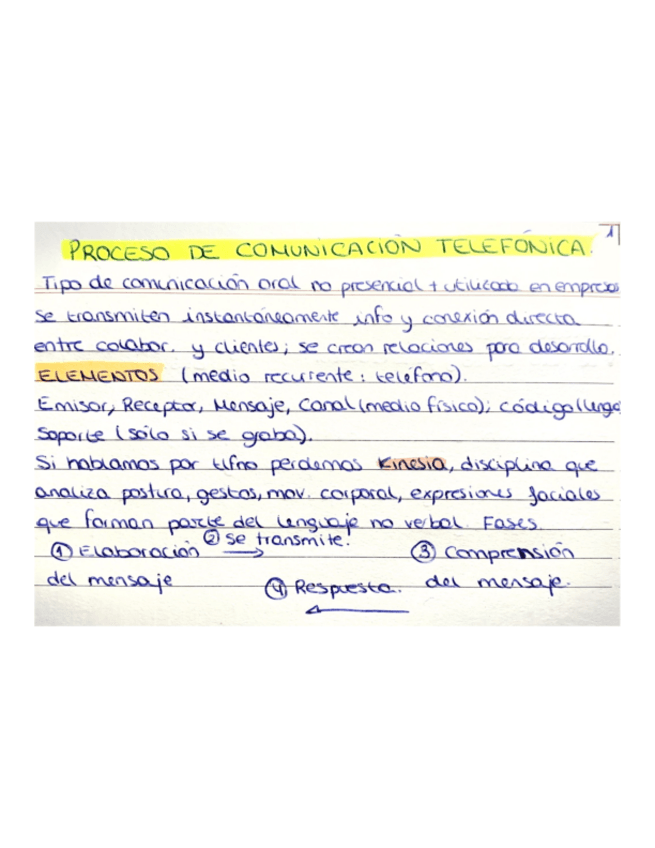 1
PROCESO DE COMUNICACIÓN TELEFÓNICA.
Tipo de comunicación oral no presencial + utilizado en empresas
se transmiten instantáneamente info y conexión directa
entre colabor. y clientes; se crean relaciones para desarrollo.
ELEMENTOS (medio recurrente: teléfono).
Emisor, Receptor, Mensaje, Canal (medio físico); código (lengu
Soporte (sólo si se graba).
Si hablamos por tlfno perdemos Kinesia, disciplina que
analiza postura, gestos, mov. corporal, expresiones faciales
que forman parte del lenguaje no verbal. Fases.
① Elaboración ② se transmite. → ③ Comprensión
del mensaje ④ Respuesta. del mensaje.
←